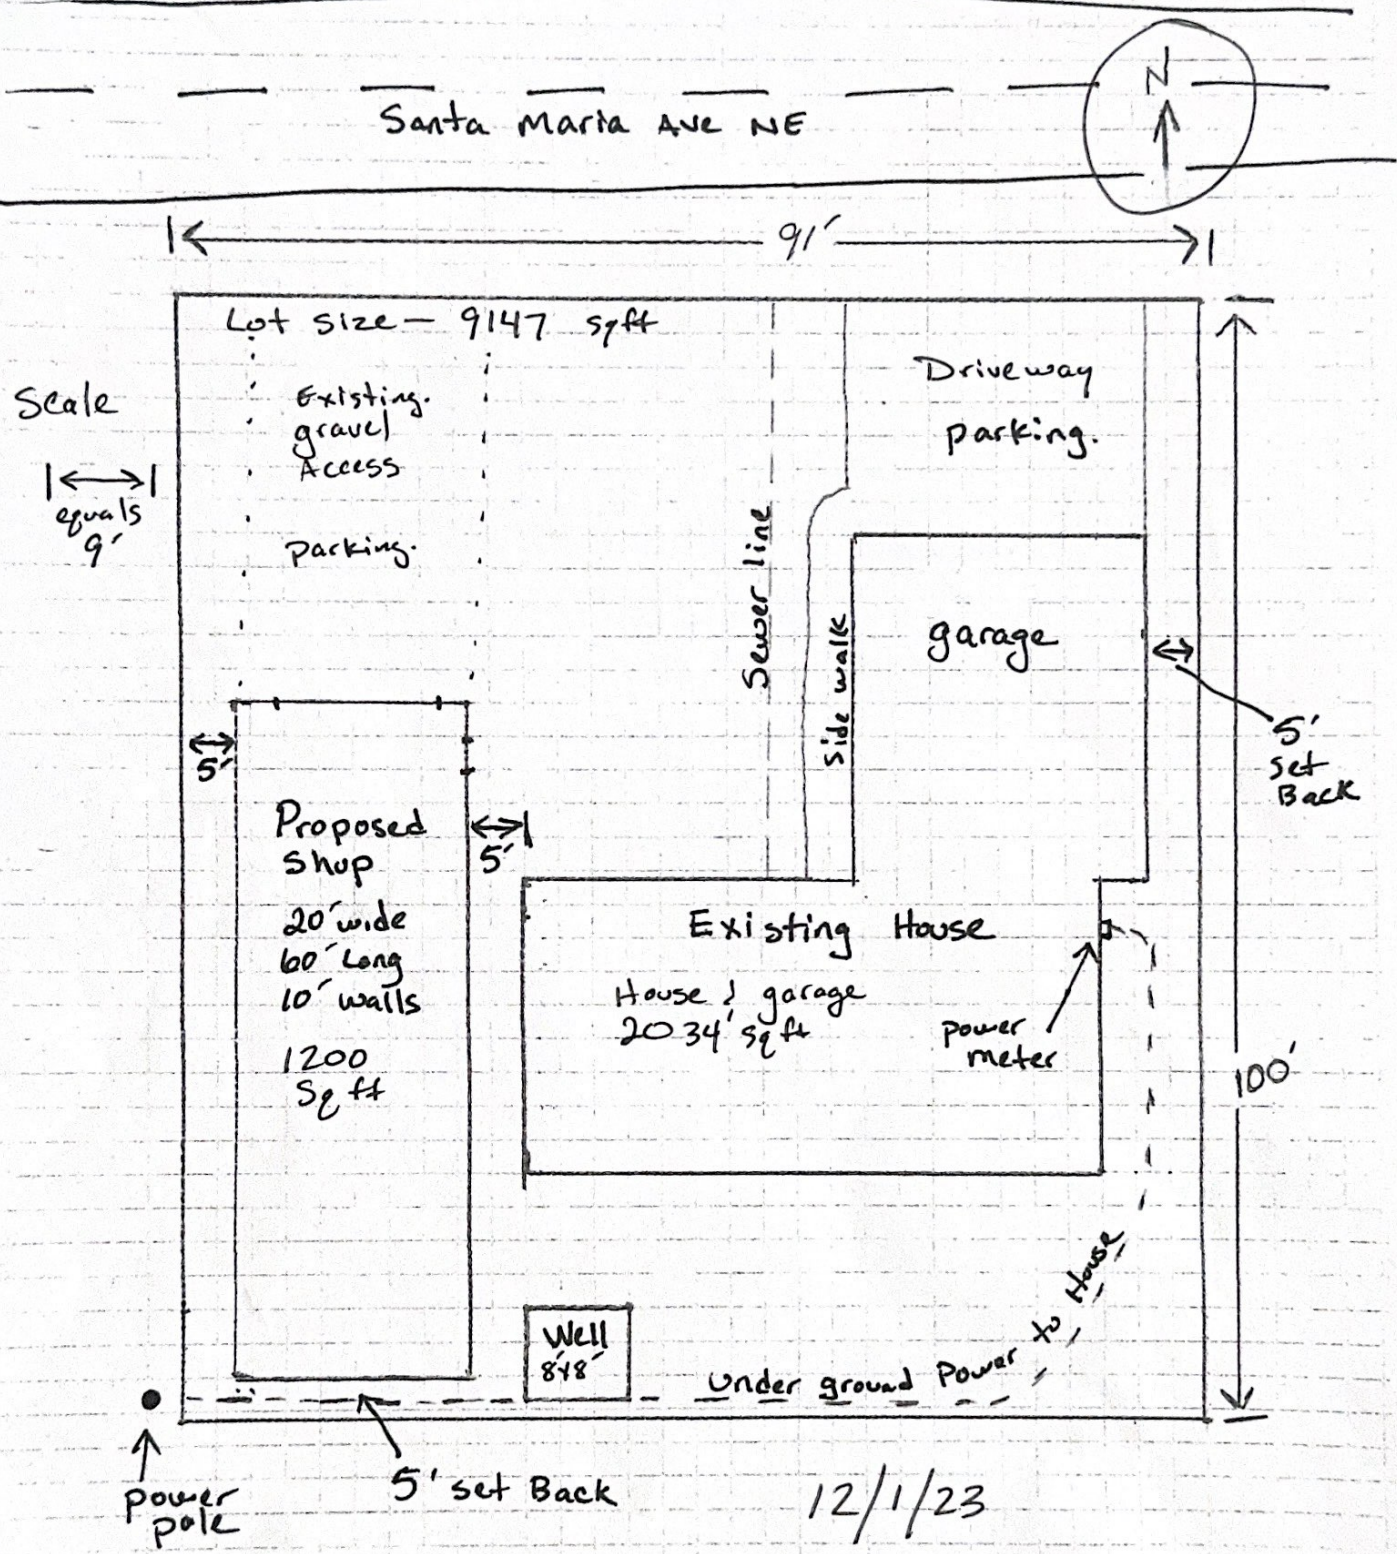 N
Santa Maria Ave NE
91'
Lot size - 9147 sqft
Scale
equals
9'
Existing.
gravel
Access
parking.
Driveway
parking.
Sewer line
Side walk
garage
5'
set
Back
5'
5'
Proposed
Shop
20' wide
60' Long
10' walls
1200
Sq ft
Existing House
House & garage
2034' sqft
power
meter
100'
Well
8'x8'
Under ground Power to House
power
pole
5' set Back
12/1/23